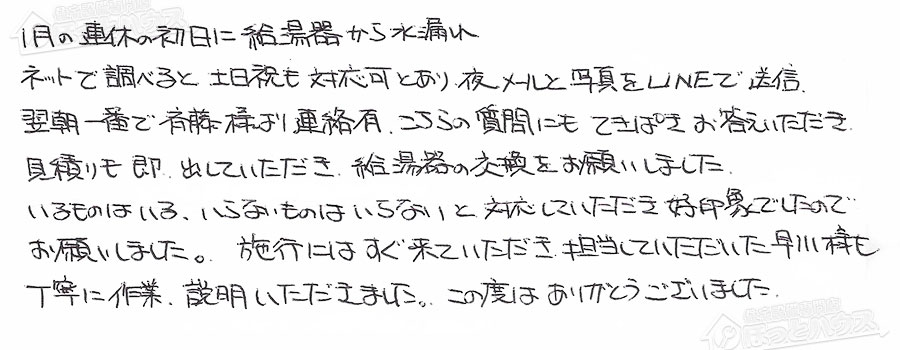 1月の連休の初日に給湯器から水漏れ
ネットで調べると土日祝も対応可とあり、夜メールと写真をLINEで送信.
翌朝一番で斉藤様より連絡有.こちらの質問にもてきぱきお答えいただき
見積りも即.出していただき.給湯器の交換をお願いしました.
いるものはいる、いらないものはいらないと対応していただき好印象でしたので
お願いしました。施行にはすぐ来ていただき.担当していただいた早川様も
丁寧に作業、説明いただきました。この度はありがとうございました.
ほっとハウス